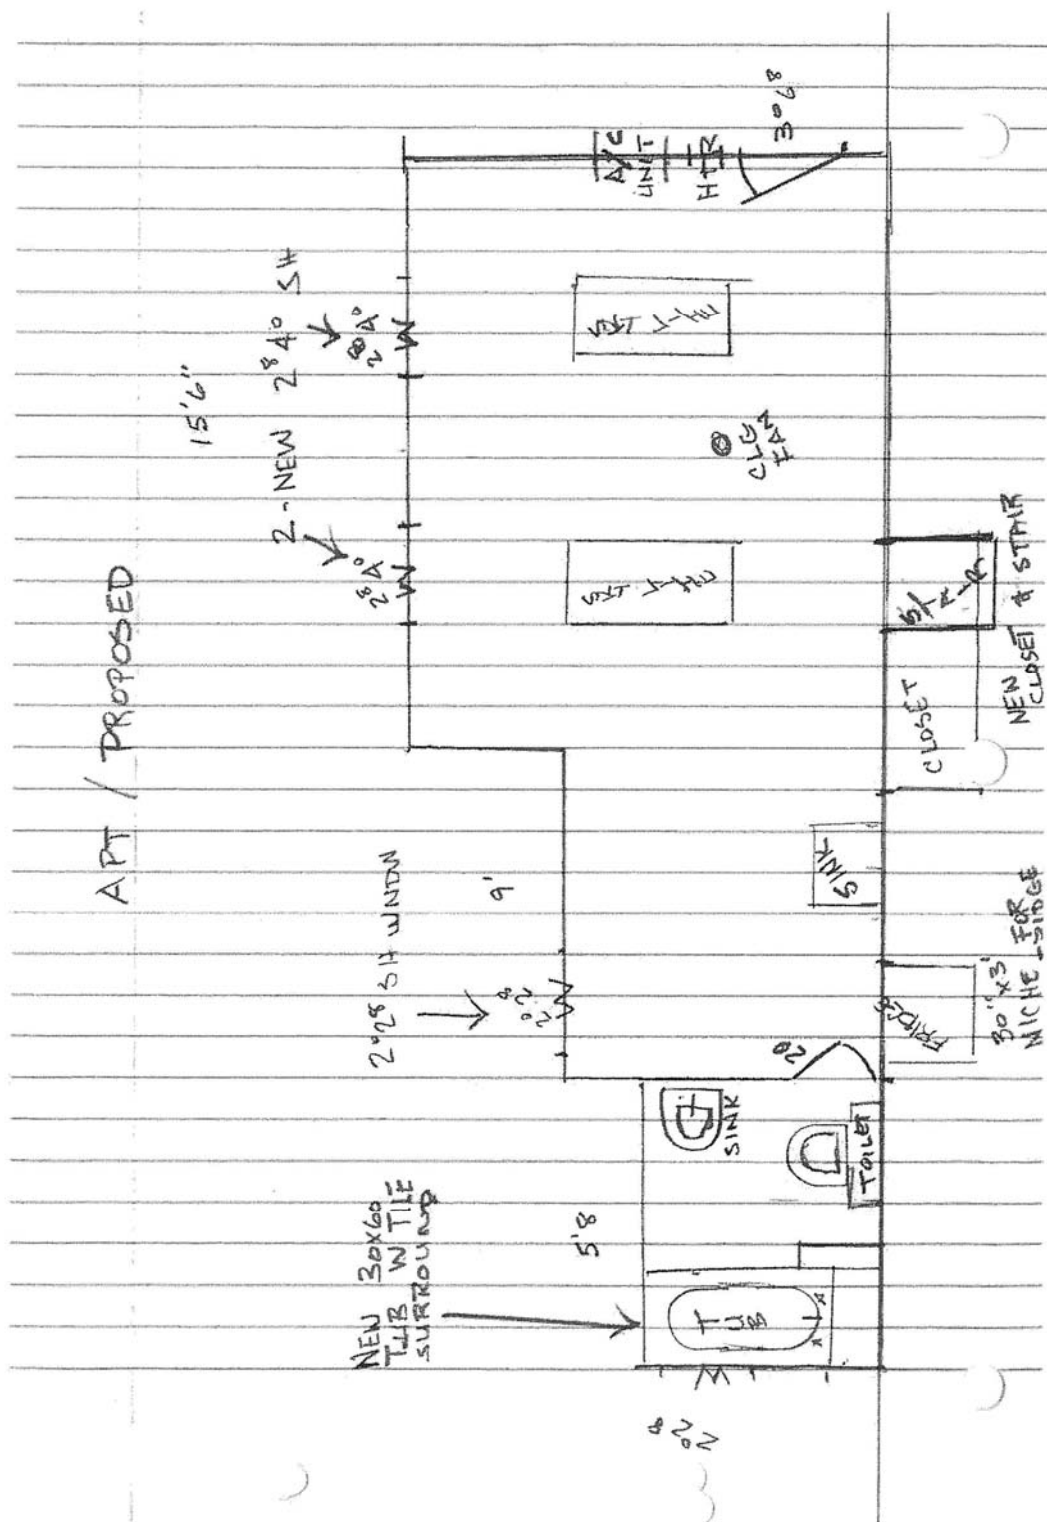 APT / PROPOSED
15'6"
2-NEW 2⁸ 4⁰ SH
2⁸ 4⁰
2⁸ 4⁰
A/C
UNIT
HTR
3⁰6⁸
SKY
LITE
SKY
LITE
CLG
FAN
STAIR
NEW
CLOSET & STAIR
CLOSET
2⁰2⁸ SH WNDW
9'
2⁰ 2⁸
SINK
FRIDGE
30" x 3'
NICHE FOR
FRIDGE
2⁰
NEW 30X60
TUB W TILE
SURROUND
5'8
SINK
TOILET
TUB
2⁰ 2⁸